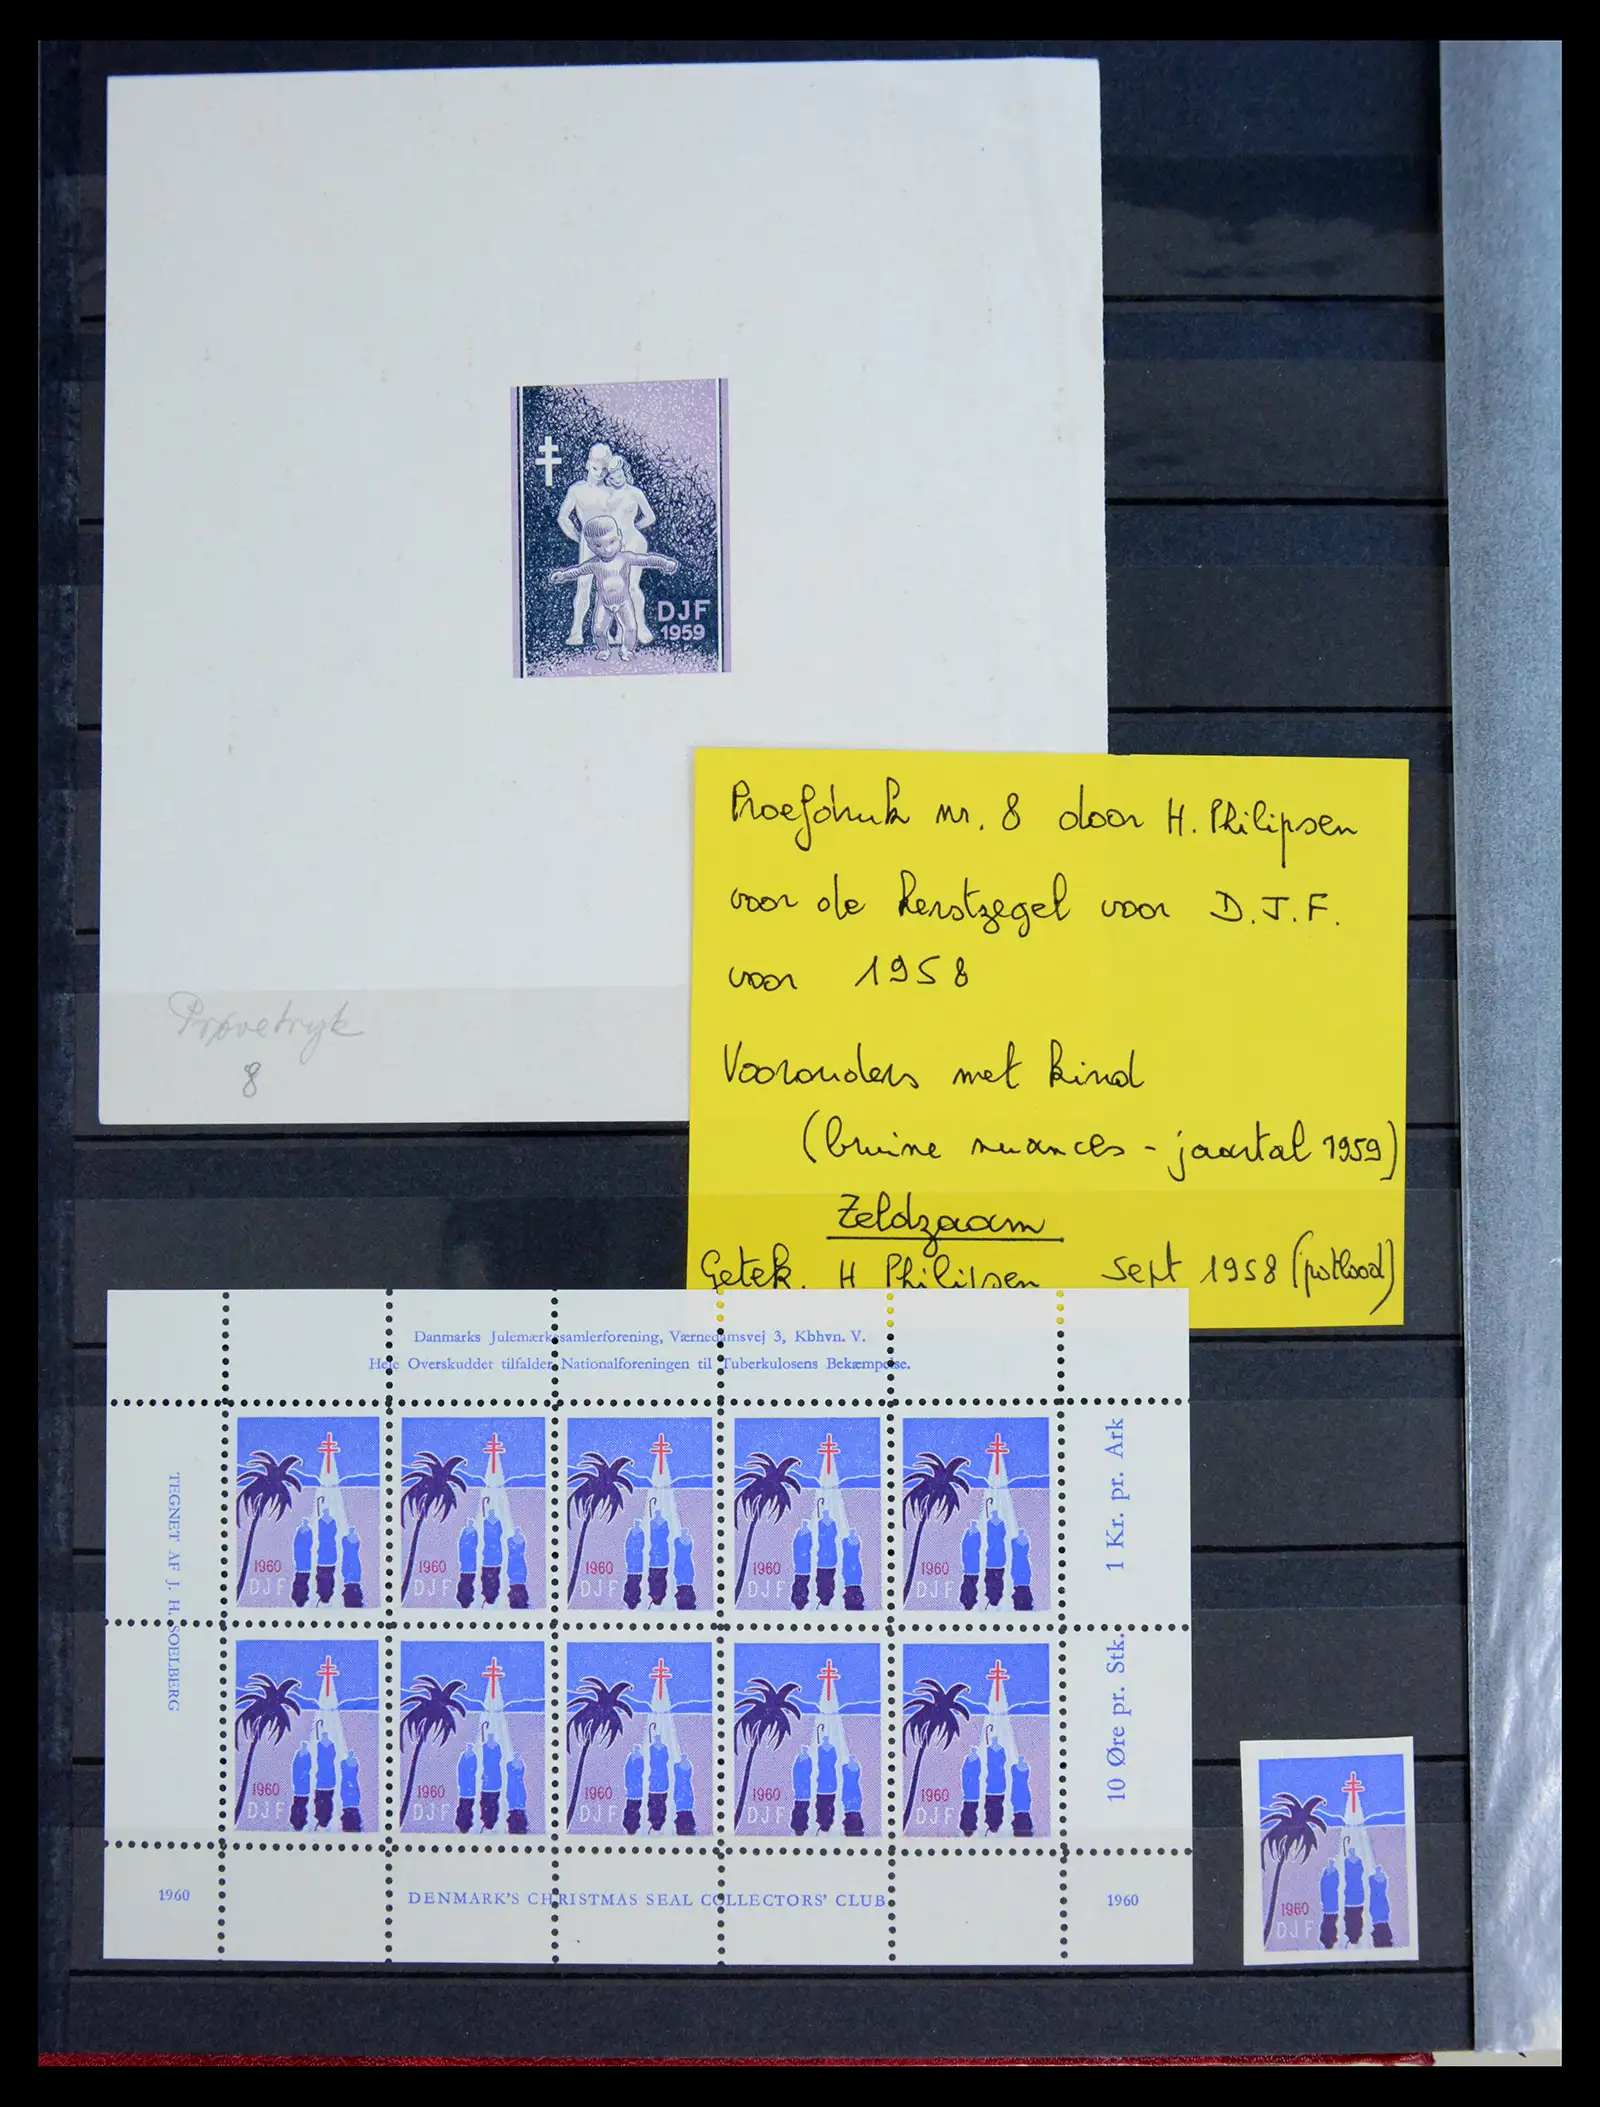 DJF
1959
Prøvetryk
8
Proefdruk nr. 8 door H. Philipsen
voor de kerstzegel voor D.J.F.
voor 1958
Voorouders met kind
(bruine nuances - jaartal 1959)
Zeldzaam
Getek. H Philipsen sept 1958 (potlood)
Danmarks Julemærkesamlerforening, Værnedamsvej 3, Kbhvn. V.
Hele Overskuddet tilfalder Nationalforeningen til Tuberkulosens Bekæmpelse.
TEGNET AF J. H. SOELBERG
1960
DJF
1960
DJF
1960
DJF
1960
DJF
1960
DJF
1 Kr. pr. Ark
1960
DJF
1960
DJF
1960
DJF
1960
DJF
1960
DJF
10 Øre pr. Stk.
1960
DENMARK'S CHRISTMAS SEAL COLLECTORS' CLUB
1960
1960
DJF